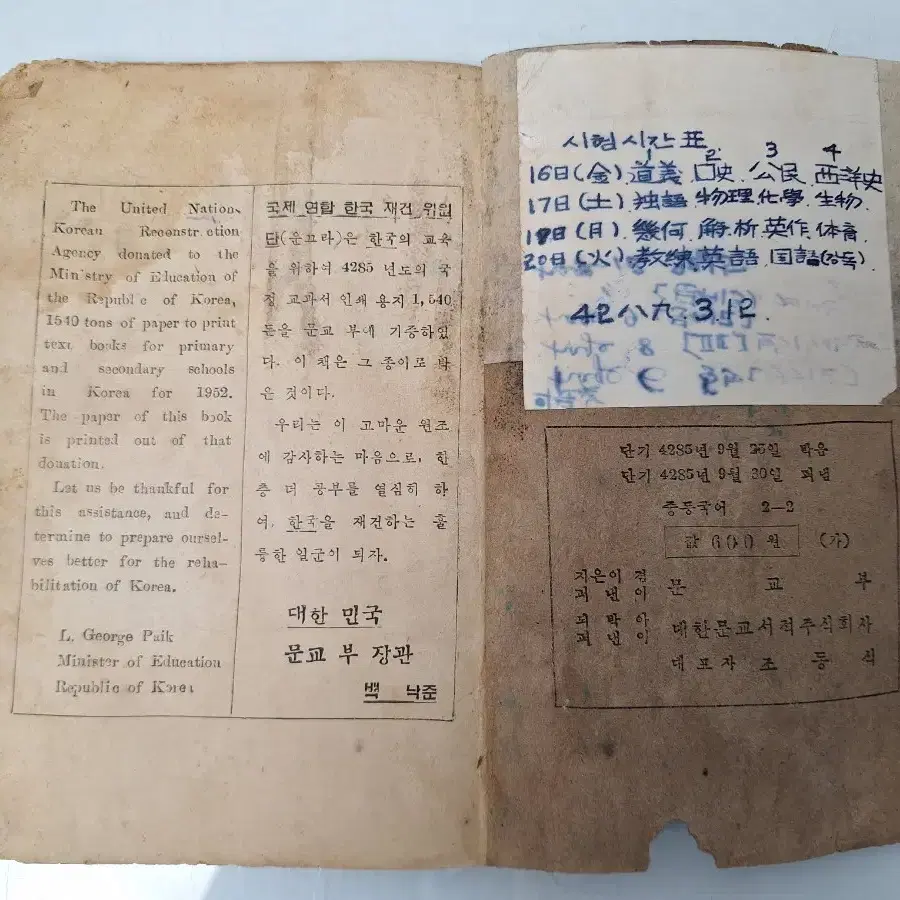 The United Nation
Korean Reconstr ction
Agency donated to the
Ministry of Education of
the Republ c of Korea,
1540 tons of paper to print
text books for primary
and secondary schools
in Korea for 1952.
The paper of this book
is printed out of that
donation.
Let us be thankful for
this assistance, and de-
termine to prepare oursel-
ves better for the reha-
bilitation of Korea.
L. George Paik
Minister of Education
Republic of Korea
국제 연합 한국 재건 위원
단(운끄라)은 한국의 교육
을 위하여 4285 년도의 국
정 교과서 인쇄 용지 1,540
톤을 문교 부에 기증하였
다. 이 책은 그 종이로 박
은 것이다.
우리는 이 고마운 원조
에 감사하는 마음으로, 한
층 더 공부를 열심히 하
여, 한국을 재건하는 훌
륭한 일군이 되자.
대한 민국
문교 부 장관
백 낙준
시험 시간 표
1 2 3 4
16日(金) 道義 口史 公民 西洋史
17日(土) 独語 物理 化學 生物
19日(月) 幾何 解析 英作 体育
20日(火) 教練 英語 国語(강독)
42八九 3.12.
단기 4285년 9월 25일 박음
단기 4285년 9월 30일 펴냄
중등국어 2—2
값 600 원 (가)
지은이 겸
펴낸이 문교부
펴박아
펴낸이 대한문교서적주식회사
대표자 조 동 식